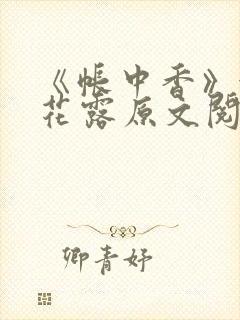 《帐中香》
花露原文阅
卿青妤